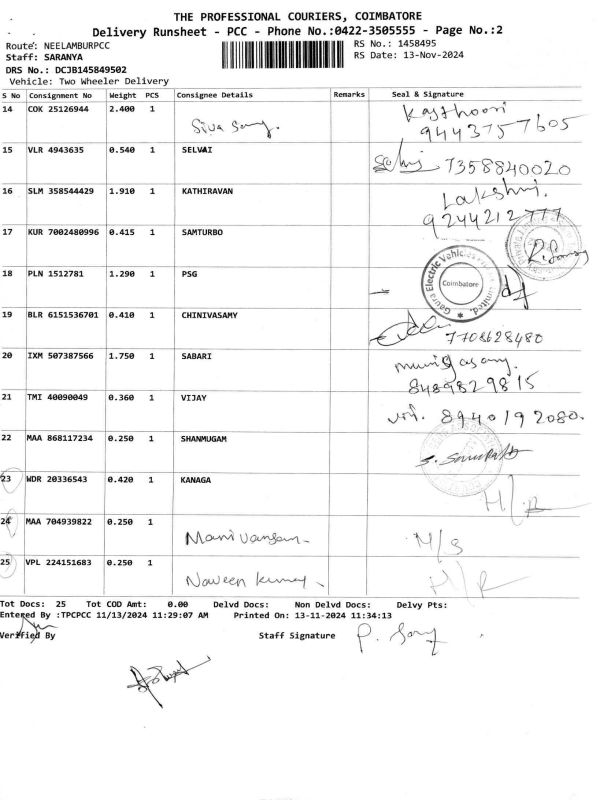 THE PROFESSIONAL COURIERS, COIMBATORE
Delivery Runsheet - PCC - Phone No.:0422-3505555 - Page No.:2
Route: NEELAMBURPCC RS No.: 1458495
Staff: SARANYA RS Date: 13-Nov-2024
DRS No.: DCJB145849502
Vehicle: Two Wheeler Delivery
S No Consignment No Weight PCS Consignee Details Remarks Seal & Signature
14 COK 25126944 2.400 1 Siva Samy. Kasthoori
9443757605
15 VLR 4943635 0.540 1 SELVAI Selvi 7358840020
16 SLM 358544429 1.910 1 KATHIRAVAN Lakshmi.
9244212777
17 KUR 7002480996 0.415 1 SAMTURBO
18 PLN 1512781 1.290 1 PSG Gaura Electric Vehicles Coimbatore
19 BLR 6151536701 0.410 1 CHINIVASAMY
7708628480
20 IXM 507387566 1.750 1 SABARI
8489829815
21 TMI 40090049 0.360 1 VIJAY 8940192080.
22 MAA 868117234 0.250 1 SHANMUGAM
23 WDR 20336543 0.420 1 KANAGA H/R
24 MAA 704939822 0.250 1 Manivansan. N/S
25 VPL 224151683 0.250 1 Naveen Kumar. H/R
Tot Docs: 25 Tot COD Amt: 0.00 Delvd Docs: Non Delvd Docs: Delvy Pts:
Entered By :TPCPCC 11/13/2024 11:29:07 AM Printed On: 13-11-2024 11:34:13
Verified By Staff Signature